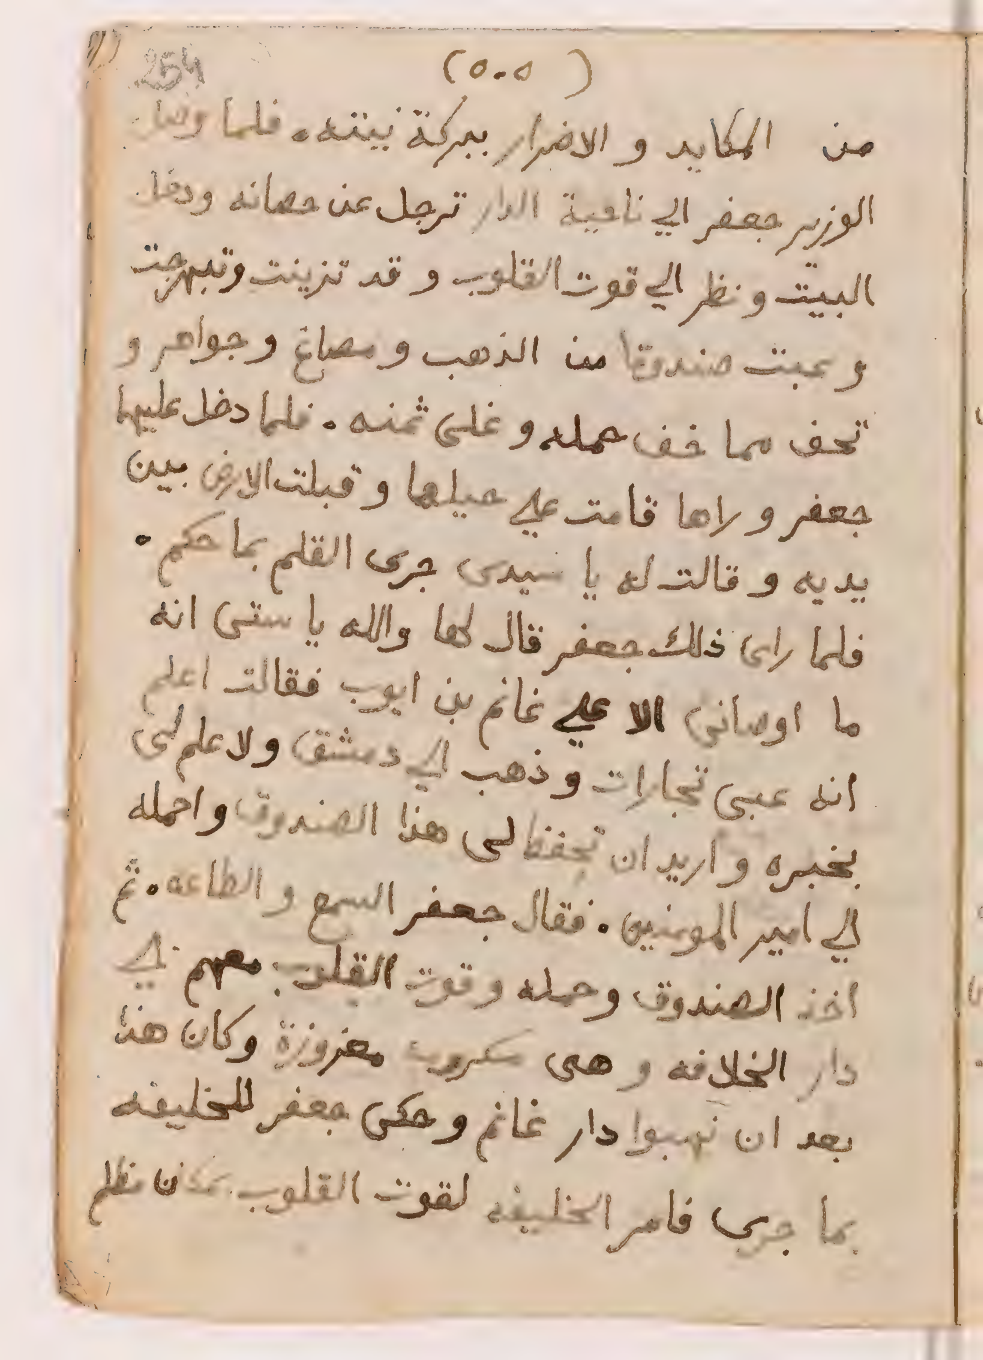 254
(٥٠٥)
من المكايد و الاضرار ببركة نيته. فلما وصل
الوزير جعفر الي ناحية الدار ترجل عن حصانه ودخل
البيت ونظر الي قوت القلوب و قد تزينت وتبهرجت
و عبت صندوقا من الذهب و مصاغ و جواهر و
تحف مما خف حمله و غلى ثمنه . فلما دخل عليها
جعفر و راها قامت علي حيلها و قبلت الارض بين
يديه و قالت له يا سيدى جرى القلم بما حكم .
فلما راى ذلك جعفر قال لها والله يا ستى انه
ما اوصانى الا علي غانم بن ايوب فقالت اعلم
انه عبى تجارات و ذهب الي دمشق ولا علم لى
بخبره و اريد ان تحفظ لى هذا الصندوق و احمله
الي امير المومنين . فقال جعفر السمع و الطاعه . ثم
اخذ الصندوق و حمله و قوت القلوب معهم الي
دار الخلافه و هى معزوزة وكان هذا
بعد ان نهبوا دار غانم و حكى جعفر للخليفه
بما جرى فامر الخليفه لقوت القلوب بمكان مظلم